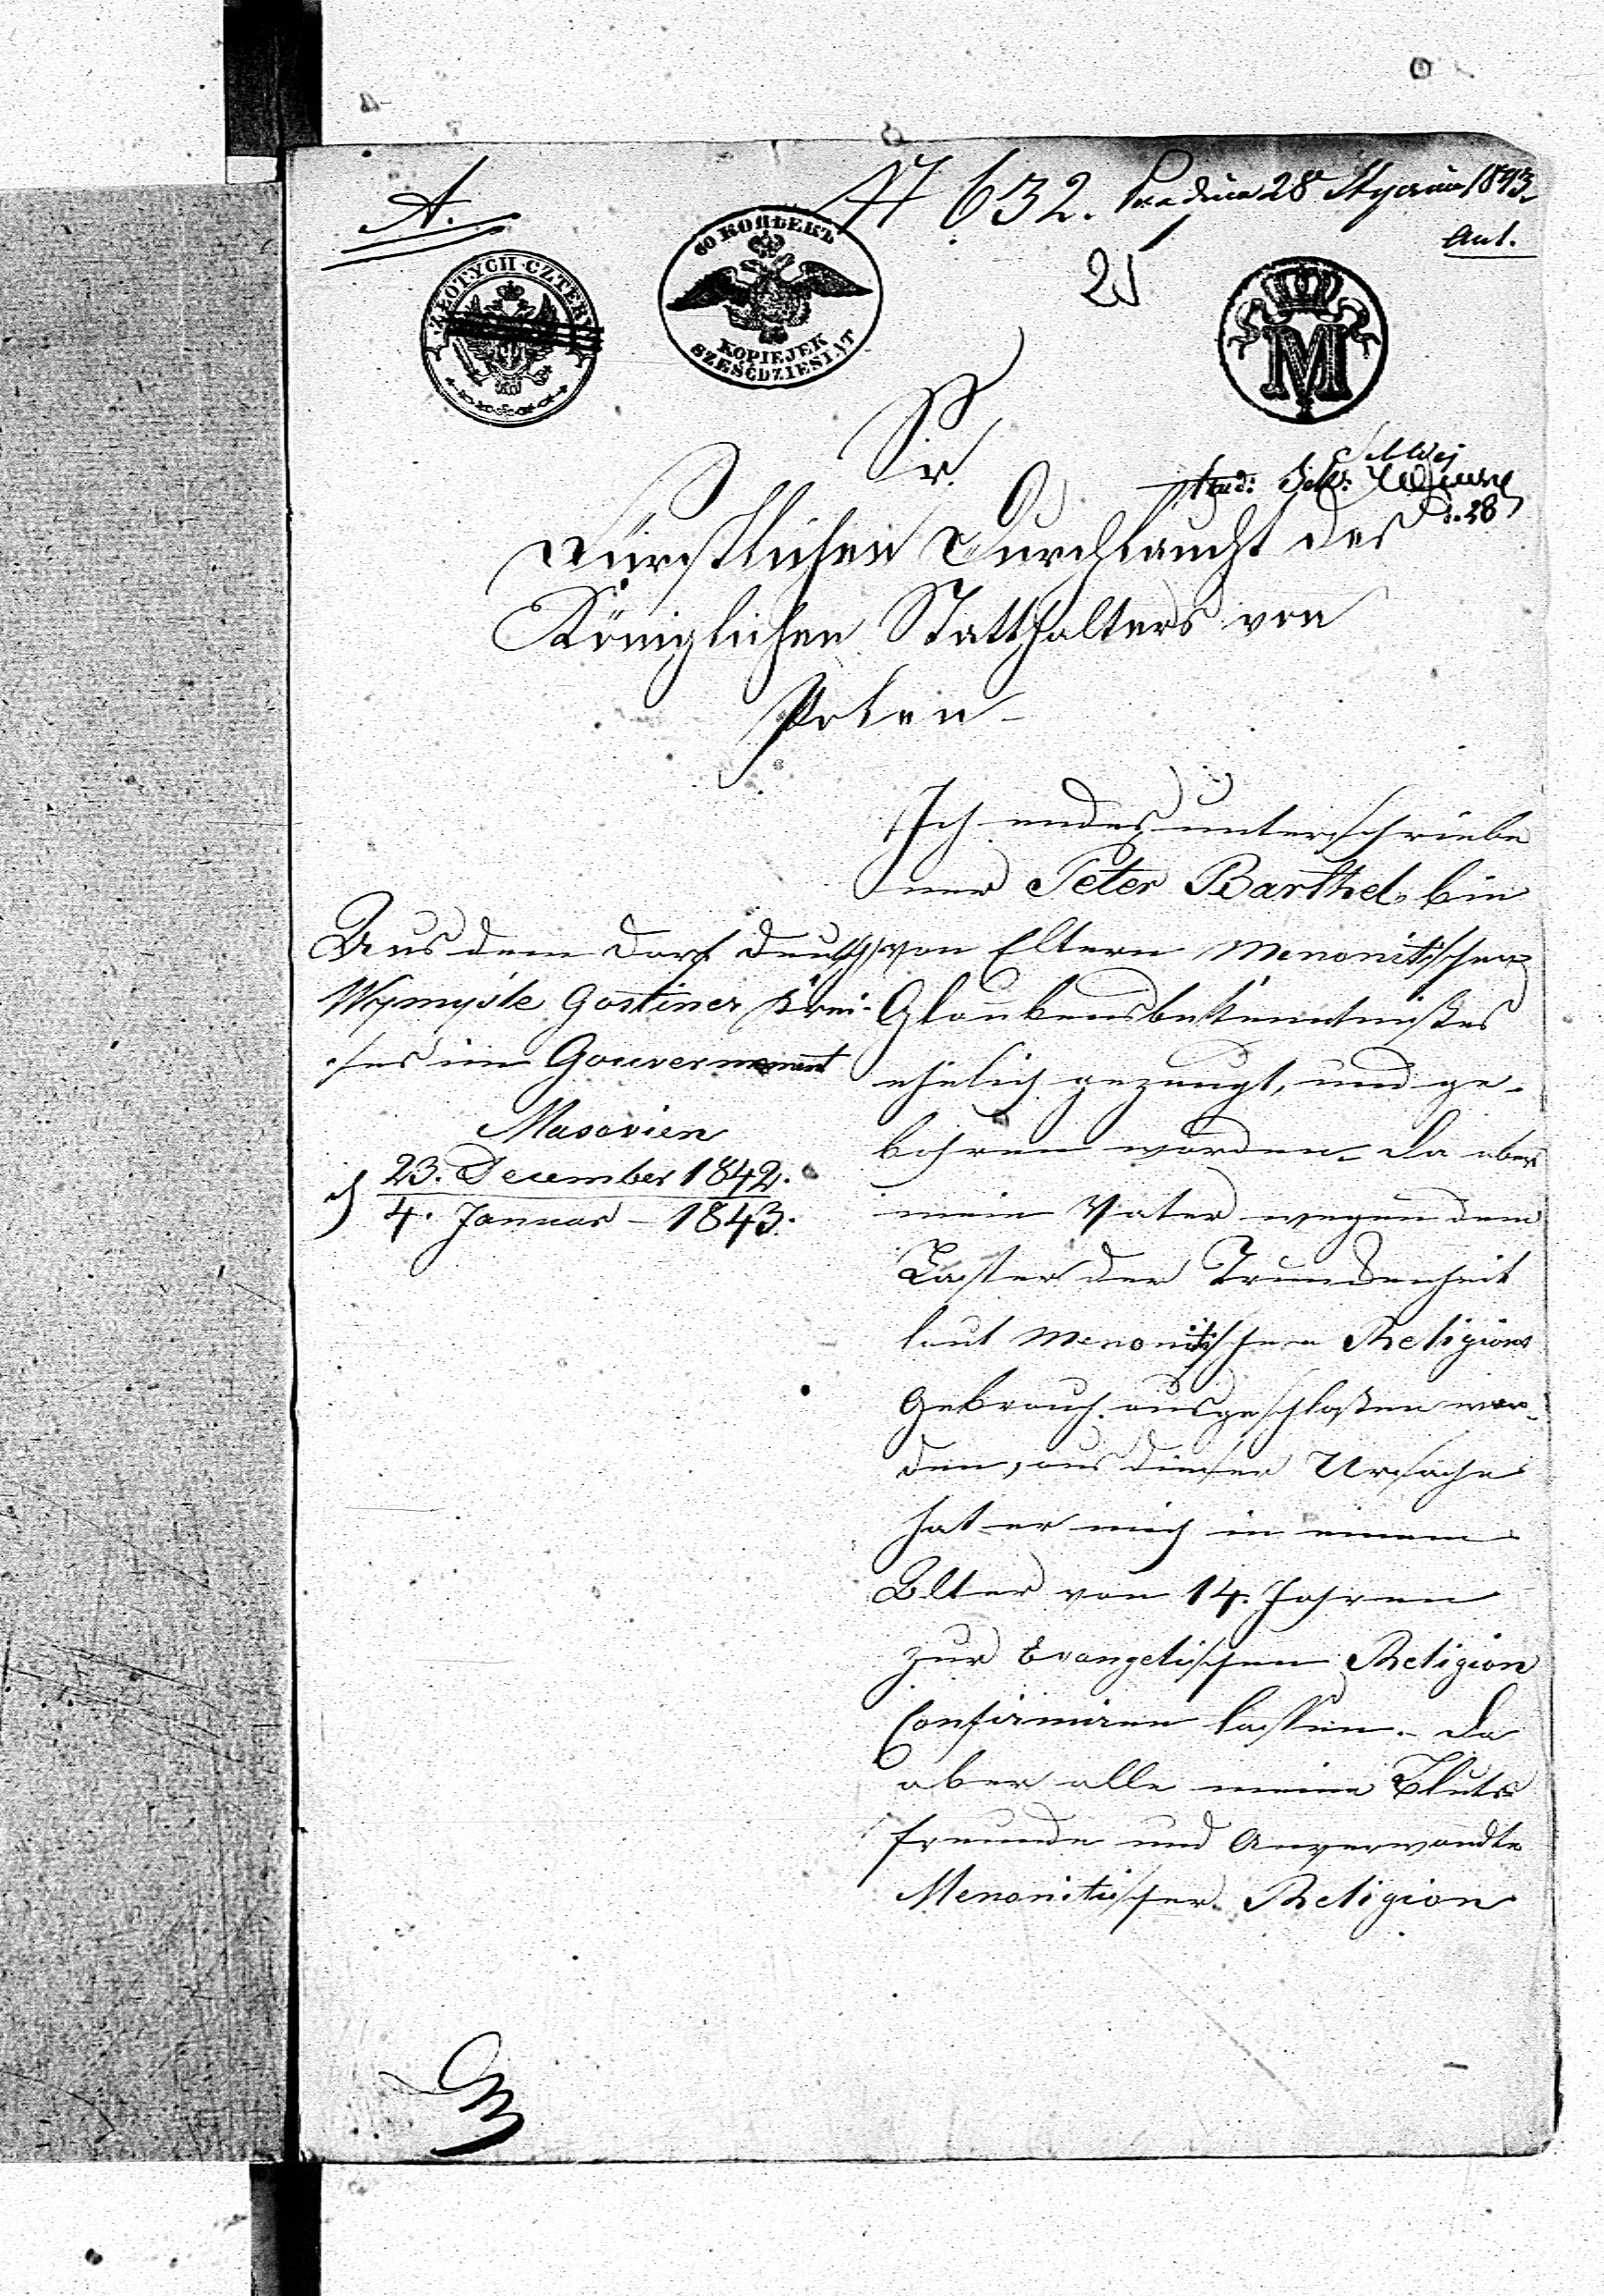 A.
N 632. Pr. dnia 28 Stycznia 1843.
Ant.
25
ZŁOTYCH CZTERY
60 КОПѢЕКЪ
KOPIEJEK
SZEŚĆDZIESIĄT
M
28
Sr.
Fürstlichen Durchlaucht des
Königlichen Statthalters von
Polen
Aus dem Dorf Deutsch
Wymysle Gostiner Krei-
ses im Gouvernement
Masovien
d 23. December 1842.
4. Januar – 1843.
Ich endesunterschriebe
ner Peter Barthel, bin
von Eltern Menonitischen
Glaubensbekenntnißes
ehelich gezeugt, und ge-
bohren worden. Da aber
mein Vater wegen dem
Laster der Trunkenheit
laut Menonitischen Religions
Gebrauch ausgeschloßen wor-
den, aus dieser Ursache
hat er mich in einem
Alter von 14. Jahren
zur Evangelischen Religion
Confirmiren lassen. Da
aber alle meine Bluts
freunde und Anverwandte
Menonitischer Religion